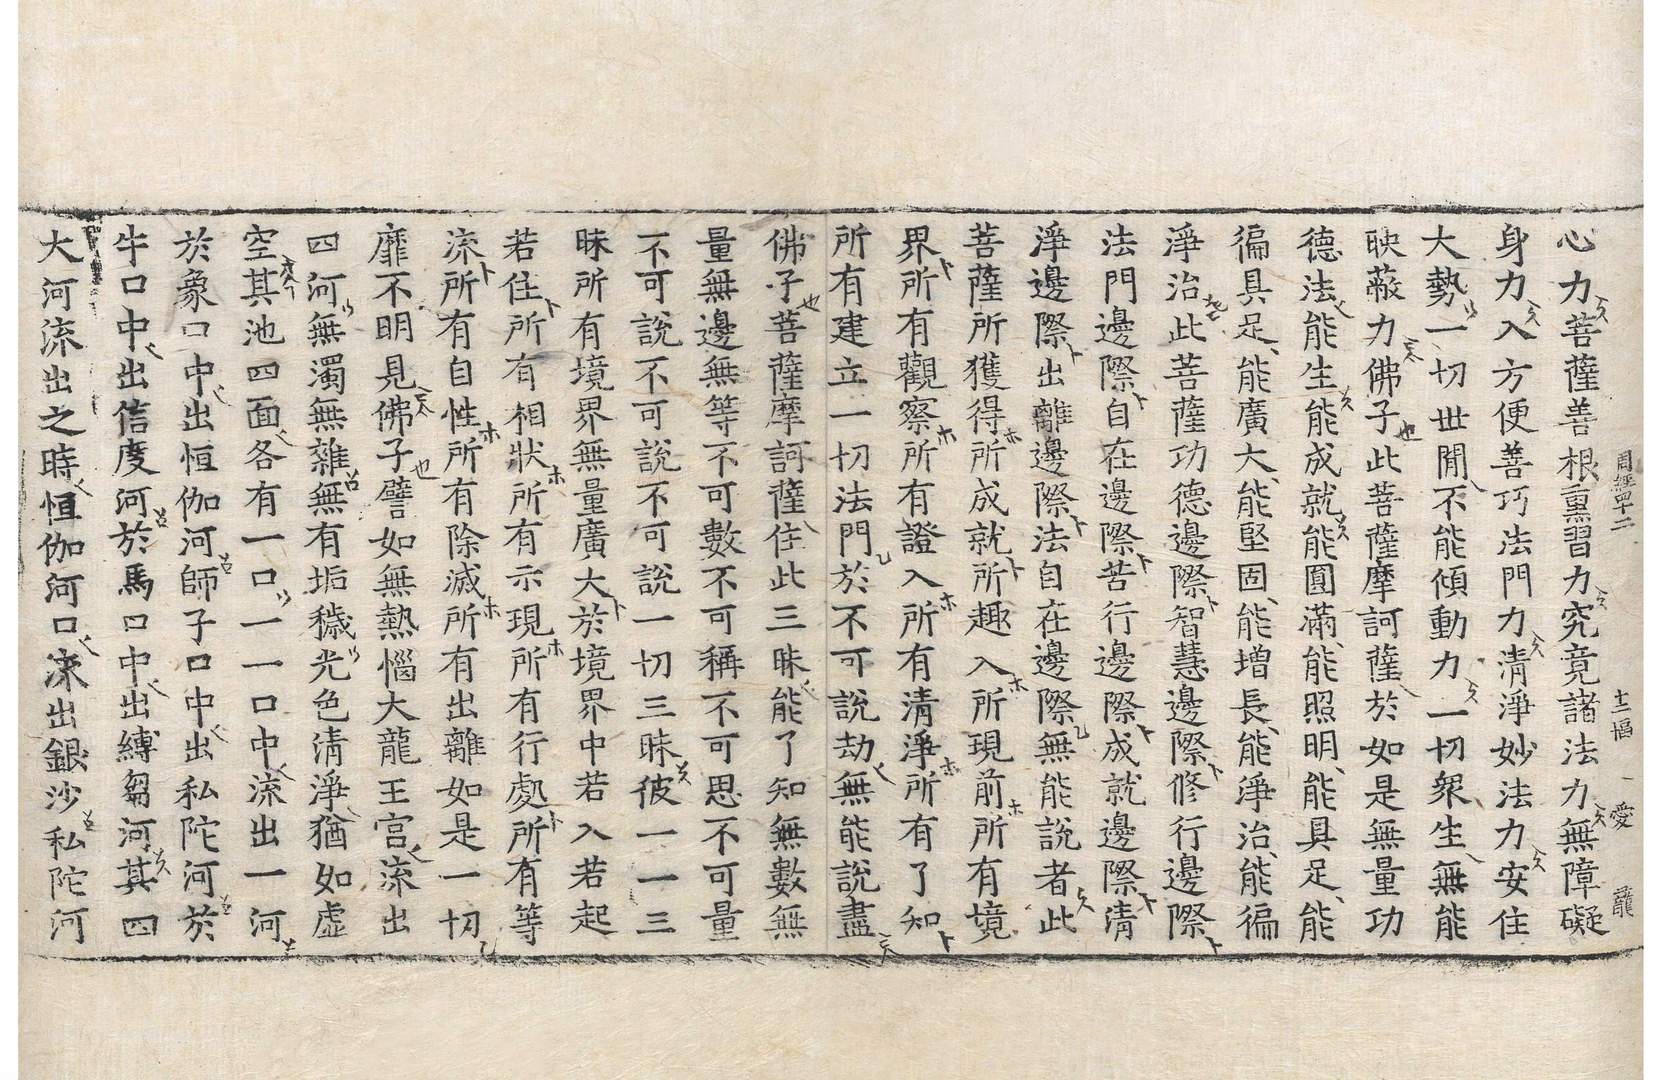 心力菩薩善根熏習力究竟諸法力無障礙
身力入方便善巧法門力清淨妙法力安住
大勢一切世閒不能傾動力一切衆生無能
映蔽力佛子此菩薩摩訶薩於如是無量功
德法能生能成就能圓滿能照明能具足能
徧具足能廣大能堅固能增長能淨治能徧
淨治此菩薩功德邊際智慧邊際修行邊際
法門邊際自在邊際苦行邊際成就邊際清
淨邊際出離邊際法自在邊際無能說者此
菩薩所獲得所成就所趣入所現前所有境
界所有觀察所有證入所有清淨所有了知
所有建立一切法門於不可說劫無能說盡
佛子菩薩摩訶薩住此三昧能了知無數無
量無邊無等不可數不可稱不可思不可量
不可說不可說不可說一切三昧彼一一三
昧所有境界無量廣大於境界中若入若起
若住所有相狀所有示現所有行處所有等
流所有自性所有除滅所有出離如是一切
靡不明見佛子譬如無熱惱大龍王宮流出
四河無濁無雜無有垢穢光色清淨猶如虛
空其池四面各有一口一一口中流出一河
於象口中出恒伽河師子口中出私陀河於
牛口中出信度河於馬口中出縛芻河其四
大河流出之時恒伽河口流出銀沙私陀河
周經四十二 十二幅 愛